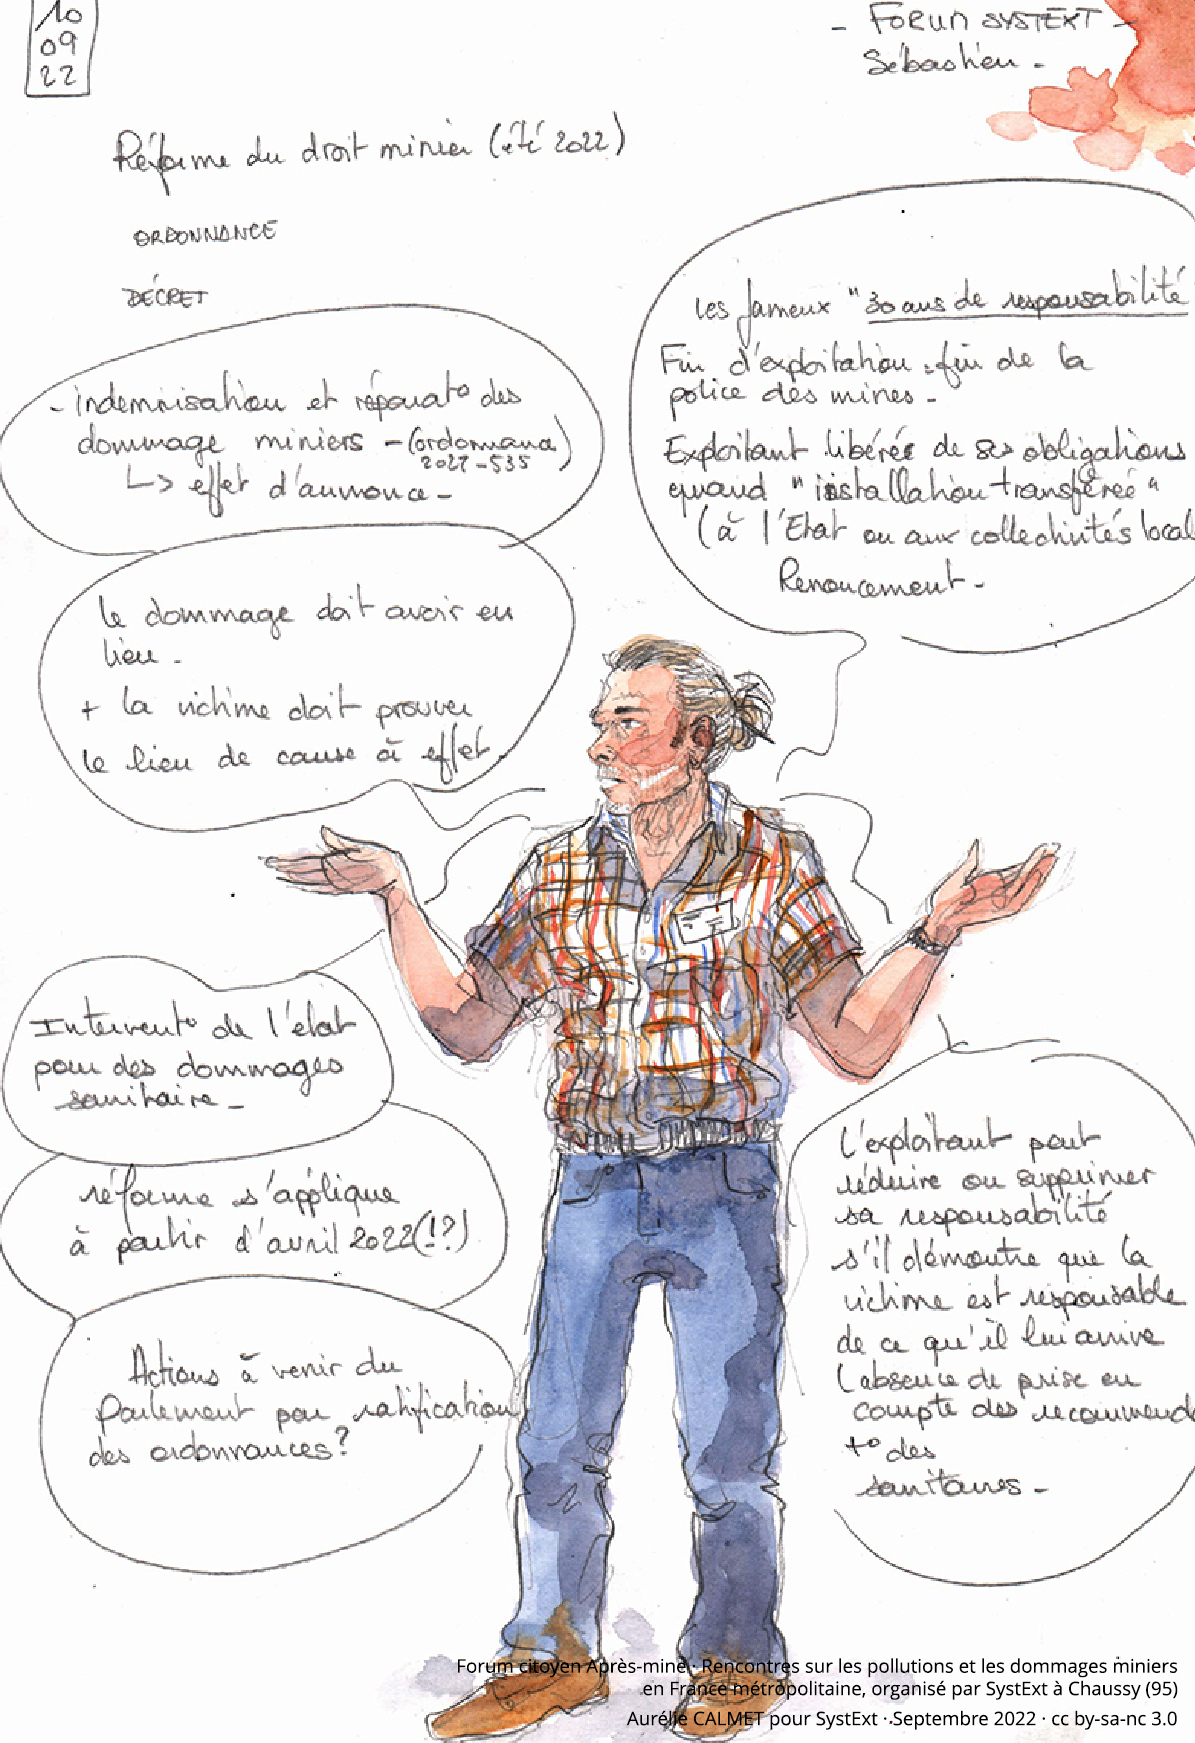 10
09
22
- FORUM SYSTEXT -
Sébastien -
Réforme du droit minier (été 2022)
ORDONNANCE
DÉCRET
Les fameux "30 ans de responsabilité
Fin d'exploitation = fin de la
police des mines -
Exploitant libéré de ses obligations
quand "installation transférée"
(à l'Etat ou aux collectivités local
Renoncement -
- indemnisation et réparat° des
dommage miniers - (ordonnance
2022-535)
↳ effet d'annonce -
le dommage doit avoir eu
lieu -
+ la victime doit prouver
le lien de cause à effet
Intervent° de l'état
pour des dommages
sanitaire -
réforme s'applique
à partir d'avril 2022(!?)
Actions à venir du
Parlement pour ratification
des ordonnances?
L'exploitant peut
réduire ou supprimer
sa responsabilité
s'il démontre que la
victime est responsable
de ce qu'il lui arrive
(absence de prise en
compte des recommend
t° des
sanitaires -
Forum citoyen Après-mine · Rencontres sur les pollutions et les dommages miniers
en France métropolitaine, organisé par SystExt à Chaussy (95)
Aurélie CALMET pour SystExt · Septembre 2022 · cc by-sa-nc 3.0